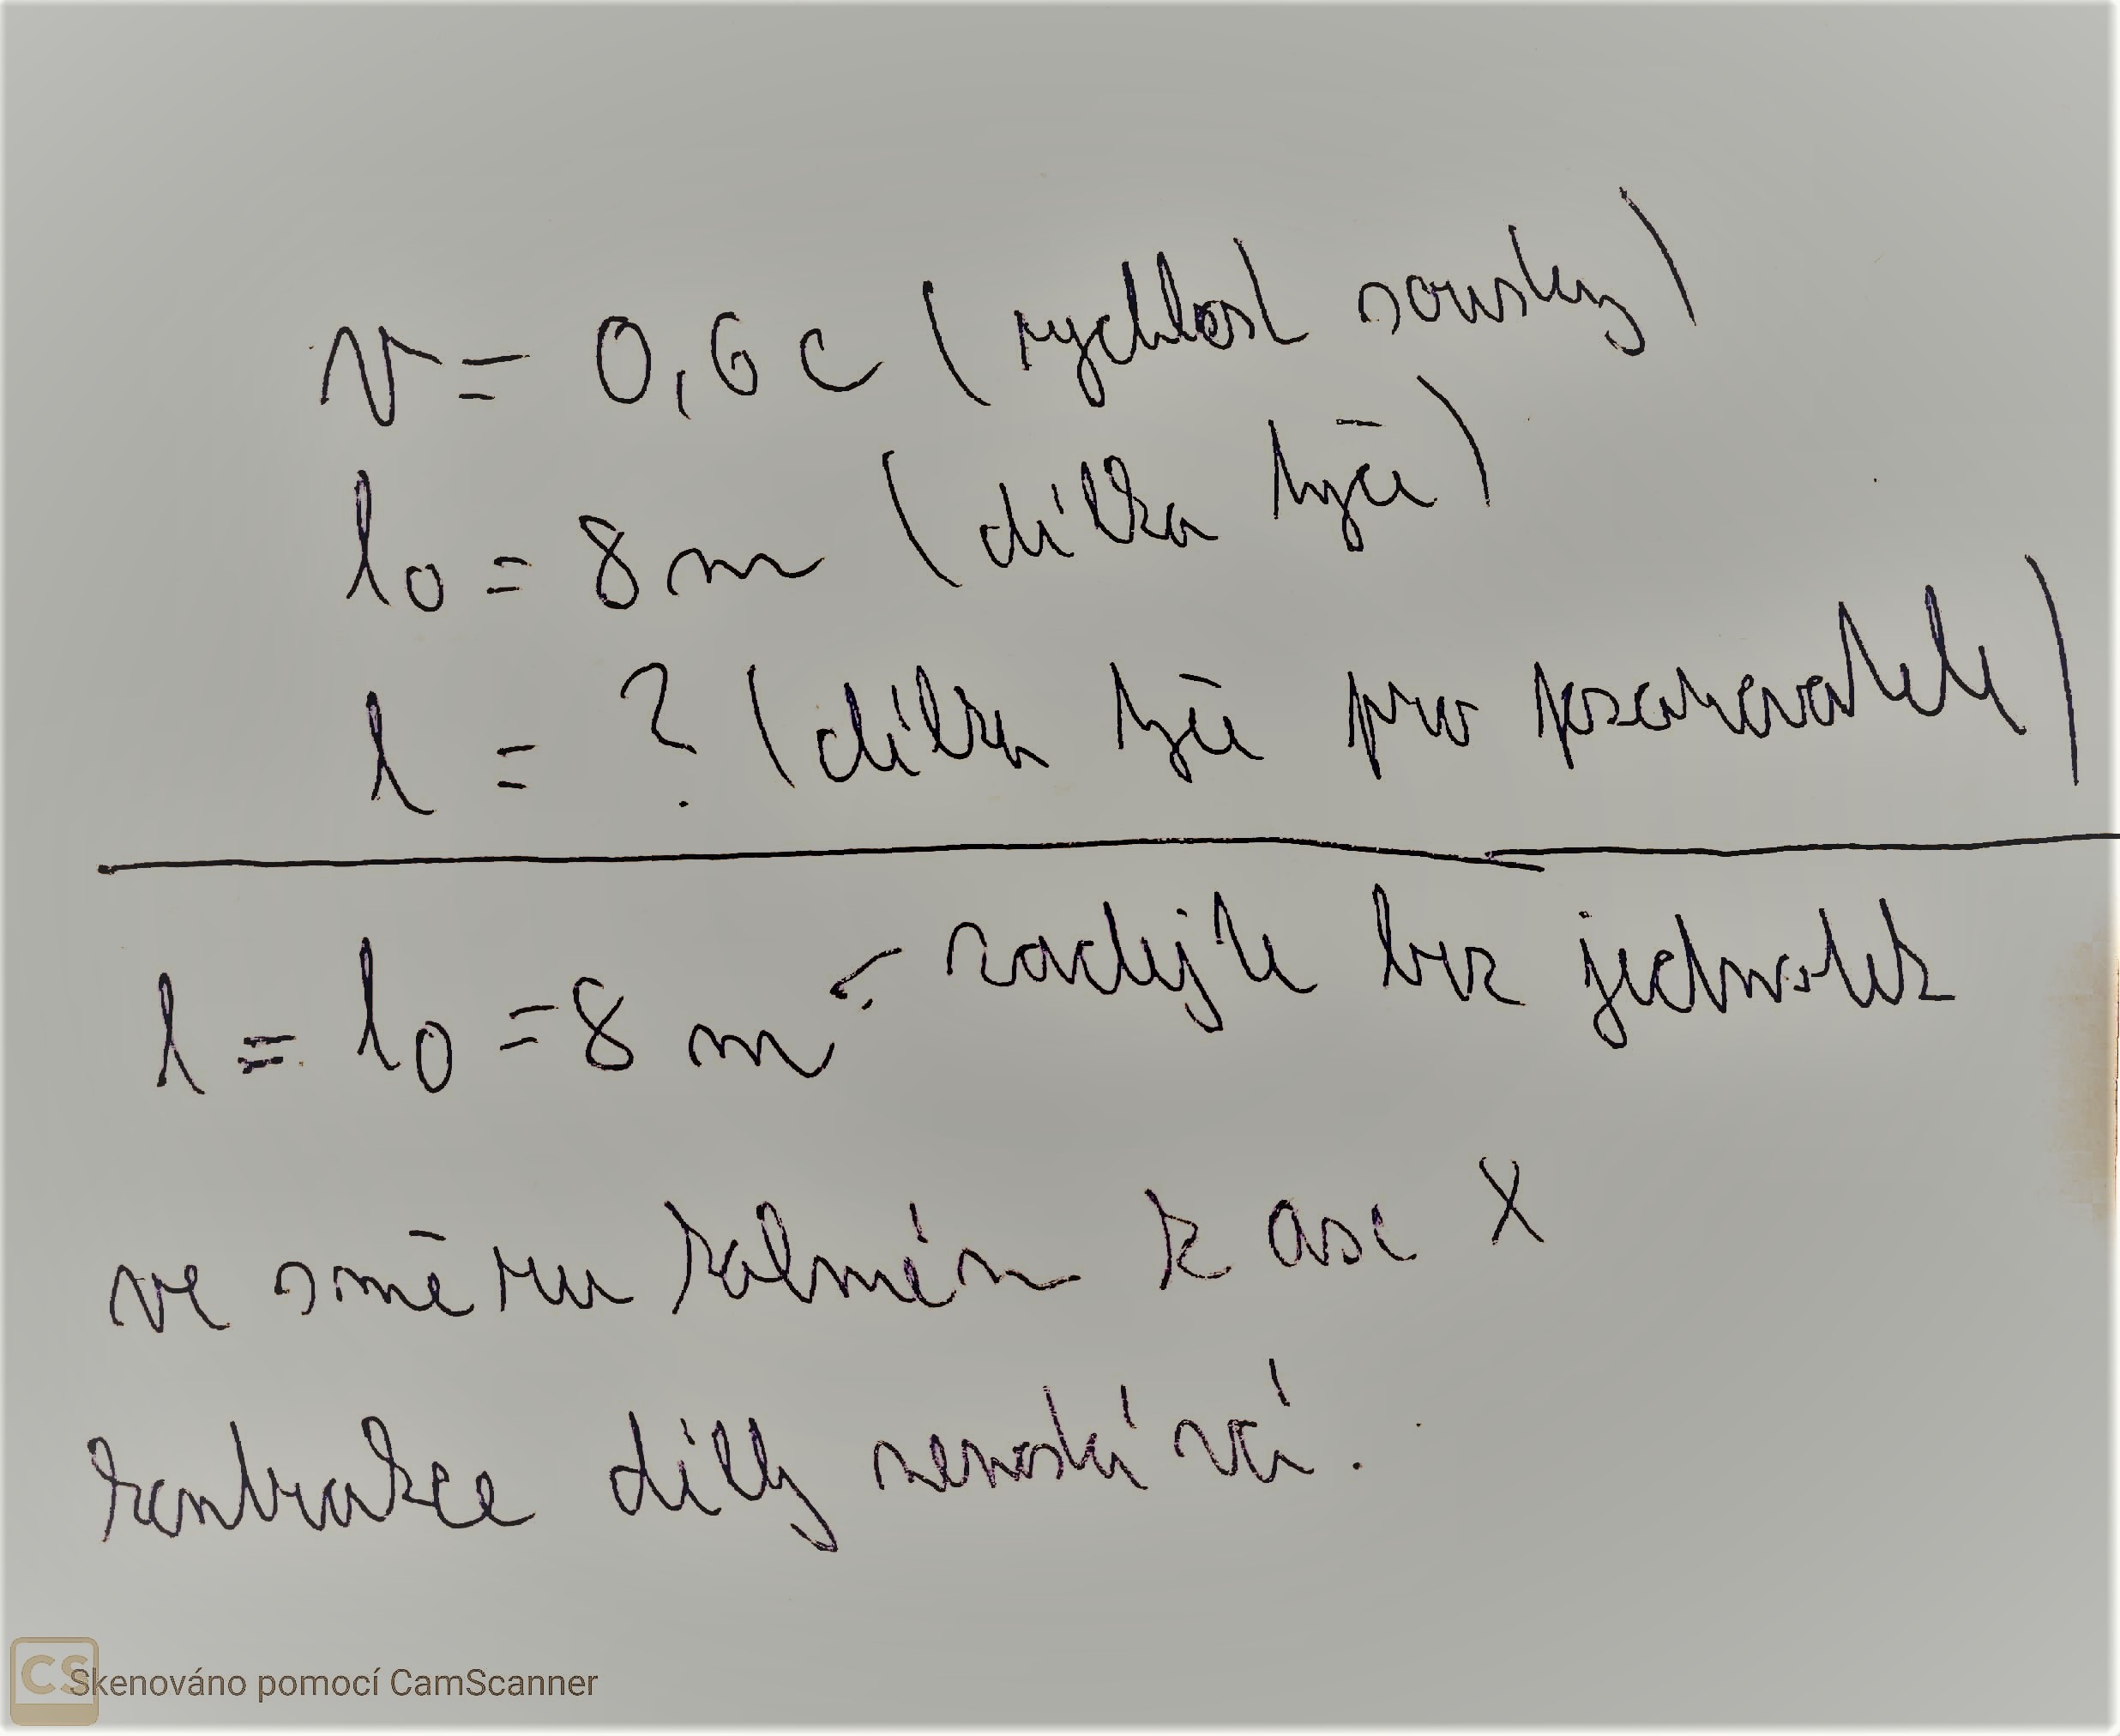 v = 0,6 c (rychlost soustavy)
l0 = 8 m (délka tyče)
l = ? (délka tyče pro pozorovatele)
l = l0 = 8 m ← zadejte bez jednotek
ve směru kolmém k ose X
kontrakce délky nenastává.
CS Skenováno pomocí CamScanner